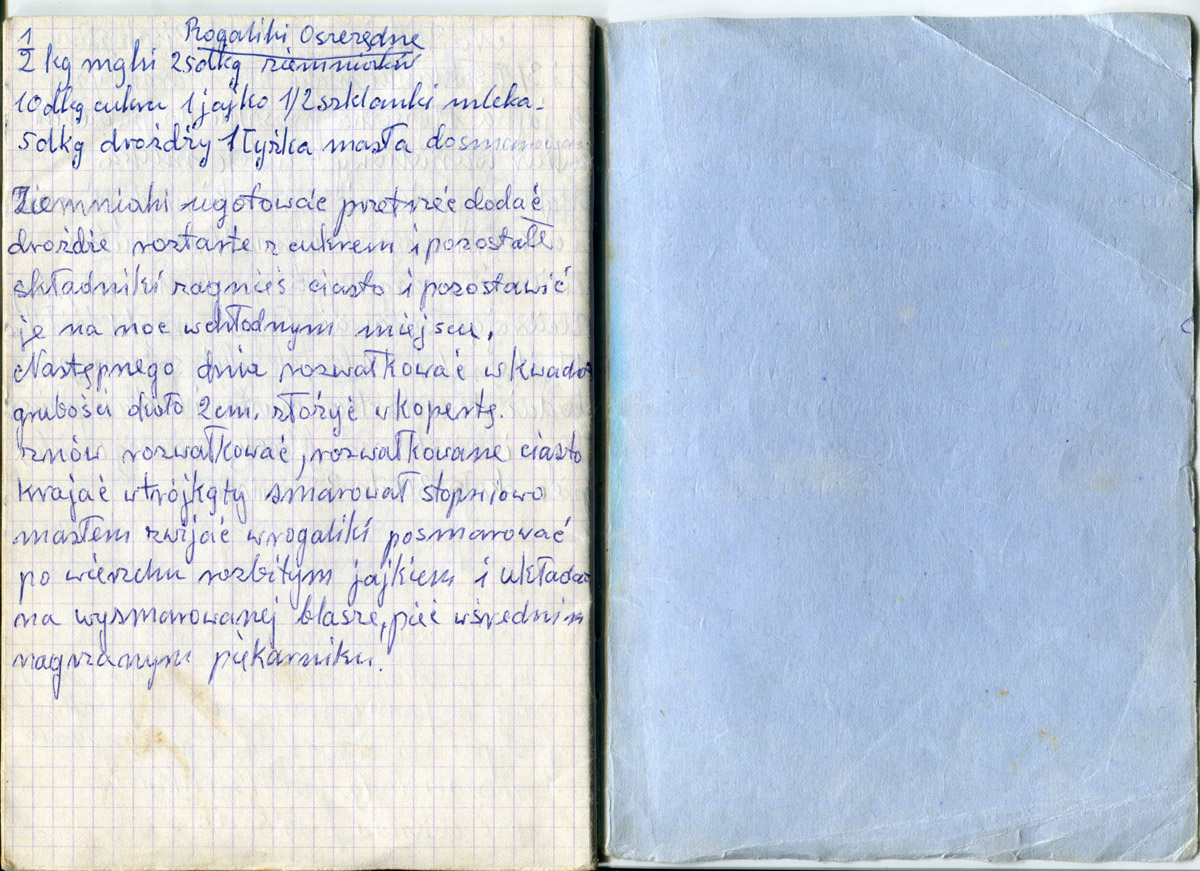 Rogaliki Oszczędne
1/2 kg mąki 25dkg ziemniaków
10dkg cukru 1 jajko 1/2 szklanki mleka.
5dkg drożdży 1 łyżka masła do smarowania
Ziemniaki ugotować przetrzeć dodać
drożdże roztarte z cukrem i pozostałe
składniki zagnieś ciasto i pozostawić
je na noc w chłodnym miejscu.
Następnego dnia rozwałkować w kwadrat
grubości około 2cm. złożyć w kopertę.
znów rozwałkować, rozwałkowane ciasto
krajać w trójkąty smarował stopniowo
masłem zwijać w rogaliki posmarować
po wierzchu rozbitym jajkiem i układać
na wysmarowanej blasze, piec w średnim
nagrzanym piekarniku.